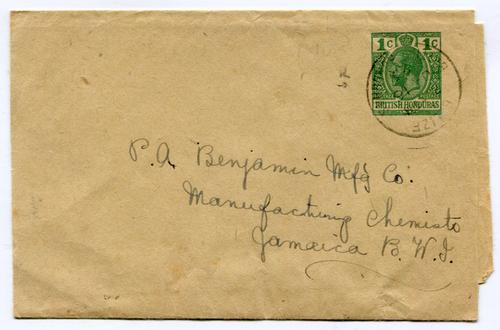 1C 1C
BRITISH HONDURAS
P. A. Benjamin Mf'g Co.
Manufacturing Chemists
Jamaica B. W. I.